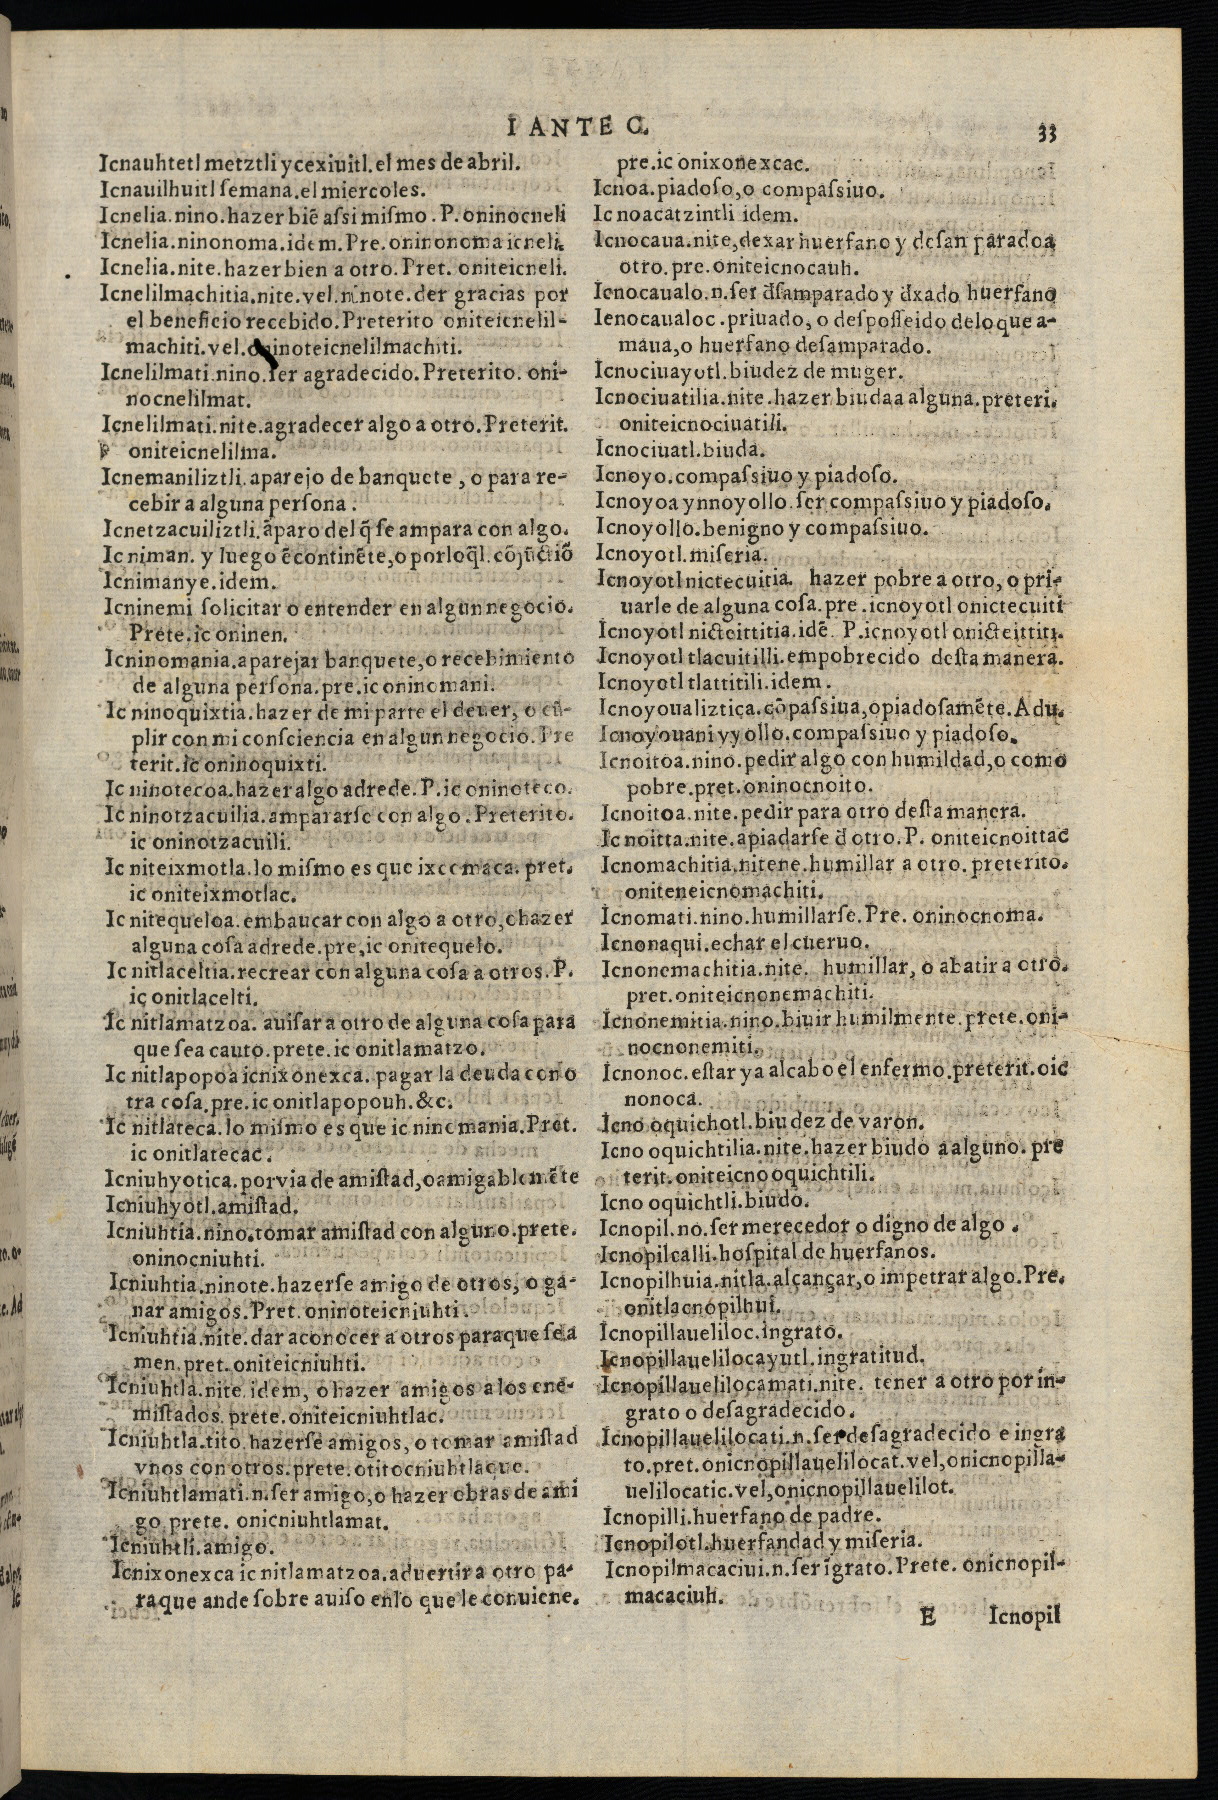 I ANTE C.
33
Icnauhtetl metztli ycexiuitl. el mes de abril.
Icnauilhuitl ſemana. el miercoles.
Icnelia. nino. hazer biē aſsi miſmo. P. oninocneli
Icnelia. ninonoma. idem. Pre. oninonoma icneli.
Icnelia. nite. hazer bien a otro. Pret. oniteicneli.
Icnelilmachitia. nite. vel. ninote. der gracias por
el beneficio recebido. Preterito oniteicnelil-
machiti. vel. oninoteicnelilmachiti.
Icnelilmati. nino. ſer agradecido. Preterito. oni-
nocnelilmat.
Icnelilmati. nite. agradecer algo a otro. Preterit.
oniteicnelilma.
Icnemaniliztli. aparejo de banquete, o para re-
cebir a alguna perſona.
Icnetzacuiliztli. āparo del q̄ ſe ampara con algo.
Ic niman. y luego ēcontinēte, o por lo q̄l. cōjūctiō
Icnimanye. idem.
Icninemi ſolicitar o entender en algun negocio.
Prete. ic oninen.
Icninomania. aparejar banquete, o recebimiento
de alguna perſona. pre. ic oninomani.
Ic ninoquixtia. hazer de mi parte el deuer, o cū-
plir con mi conſciencia en algun negocio. Pre
terit. ic oninoquixti.
Ic ninotecoa. hazer algo adrede. P. ic oninoteco.
Ic ninotzacuilia. ampararſe con algo. Preterito.
ic oninotzacuili.
Ic niteixmotla. lo miſmo es que ixcomaca. pret.
ic oniteixmotlac.
Ic nitequeloa. embaucar con algo a otro, o hazer
alguna coſa adrede. pre, ic onitequelo.
Ic nitlaceltia. recrear con alguna coſa a otros. P.
ic onitlacelti.
Ic nitlamatzoa. auiſar a otro de alguna coſa para
que ſea cauto. prete. ic onitlamatzo.
Ic nitlapopoa icnixonexca. pagar la deuda con o
tra coſa. pre. ic onitlapopouh. &c.
Ic nitlateca. lo miſmo es que ic ninomania. Pret.
ic onitlatecac.
Icniuhyotica. por via de amiſtad, o amigablemēte
Icniuhyotl. amiſtad.
Icniuhtia. nino. tomar amiſtad con alguno. prete.
oninocniuhti.
Icniuhtia. ninote. hazerſe amigo de otros, o ga-
nar amigos. Pret. oninoteicniuhti.
Icniuhtia. nite. dar aconocer a otros paraque ſe a
men. pret. oniteicniuhti.
Icniuhtla. nite. idem, o hazer amigos a los ene-
miſtados. prete. oniteicniuhtlac.
Icniuhtla. tito. hazerſe amigos, o tomar amiſtad
vnos con otros. prete. otitocniuhtlaque.
Icniuhtlamati. n. ſer amigo, o hazer obras de ami
go prete. onicniuhtlamat.
Icniuhtli. amigo.
Icnixonexca ic nitlamatzoa. aduertir a otro pa-
raque ande ſobre auiſo enlo que le conuiene.
pre. ic onixonexcac.
Icnoa. piadoſo, o compaſsiuo.
Ic noacatzintli idem.
Icnocaua. nite, dexar huerfano y deſan parado a
otro. pre. oniteicnocauh.
Icnocaualo. n. ſer d̄ſamparado y d̄xado huerfano
Ienocaualoc. priuado, o deſpoſſeido delo que a-
maua, o huerfano deſamparado.
Icnociuayotl. biudez de muger.
Icnociuatilia. nite. hazer biuda a alguna. preteri.
oniteicnociuatili.
Icnociuatl. biuda.
Icnoyo. compaſsiuo y piadoſo.
Icnoyoa ynnoyollo. ſer compaſsiuo y piadoſo.
Icnoyollo. benigno y compaſsiuo.
Icnoyotl. miſeria.
Icnoyotl nictecuitia. hazer pobre a otro, o pri-
uarle de alguna coſa. pre. icnoyotl onictecuiti
Icnoyotl nicteittitia. idē. P. icnoyotl onicteittiti.
Icnoyotl tlacuitilli. empobrecido deſta manera.
Icnoyotl tlattitili. idem.
Icnoyoualiztica. cōpaſsiua, o piadoſamēte. Adu.
Icnoyouani yyollo. compaſsiuo y piadoſo.
Icnoitoa. nino. pedir algo con humildad, o como
pobre. pret. oninocnoito.
Icnoitoa. nite. pedir para otro deſta manera.
Ic noitta. nite. apiadarſe d̄ otro. P. oniteicnoittac
Icnomachitia. nitene. humillar a otro. preterito.
oniteneicnomachiti.
Icnomati. nino. humillarſe. Pre. oninocnoma.
Icnonaqui. echar el cueruo.
Icnonemachitia. nite. humillar, o abatir a otro.
pret. oniteicnonemachiti.
Icnonemitia. nino. biuir humilmente. prete. oni-
nocnonemiti.
Icnonoc. eſtar ya al cabo el enfermo. preterit. oic
nonoca.
Icno oquichotl. biudez de varon.
Icno oquichtilia. nite. hazer biudo a alguno. pre
terit. oniteicno oquichtili.
Icno oquichtli. biudo.
Icnopil. no. ſer merecedor o digno de algo.
Icnopilcalli. hoſpital de huerfanos.
Icnopilhuia. nitla. alcançar, o impetrar algo. Pre.
onitlacnopilhui.
Icnopillaueliloc. ingrato.
Icnopillauelilocayutl. ingratitud.
Icnopillauelilocamati. nite. tener a otro por in-
grato o deſagradecido.
Icnopillauelilocati. n. ſer deſagradecido e ingra
to. pret. onicnopillauelilocat. vel, onicnopilla-
uelilocatic. vel, onicnopillauelilot.
Icnopilli. huerfano de padre.
Icnopilotl. huerfandad y miſeria.
Icnopilmacaciui. n. ſer īgrato. Prete. onicnopil-
macaciuh.
E Icnopil